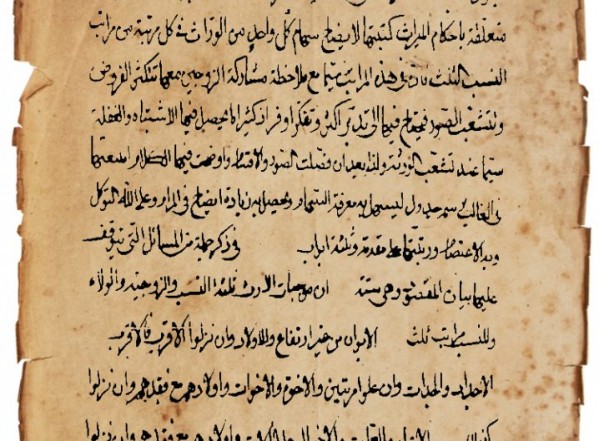 متعلقة باحكام الميراث كتبتها لايضاح سهام كل واحد من الوراث في كل مرتبة من مراتب
النسب الثلث فان في هذه المراتب سيما مع ملاحظة مشاركة الزوجين معها تتكثر الفروض
وتتشعب الصور فيحتاج فيها الى تدبر اكثر وتفكر اوفر اذ كثيرا ما يحصل فيها الاشتباه والغفلة
سيما عند تشعب الورثة ولذا بعد ان فصلت الصور والاقسام واوضحت فيها الكلام اتبعتها
في الغالب برسم جدول ليسهل به معرفة السهام ويحصل به زيادة ايضاح في المرام وعلى الله التوكل
وبه الاعتصام ورتبتها على مقدمة وثلثة ابواب في ذكر جملة من المسائل التي يتوقف
عليها بيان المقصود وهي ستة ان موجبات الارث ثلثة النسب والزوجية والولاء
وللنسب مراتب ثلث الابوان من غير ارتفاع والاولاد وان نزلوا الاقرب فالاقرب
الاجداد والجدات وان علوا مرتبين والاخوة والاخوات واولادهم مع فقدهم وان نزلوا
الاعمام والعمات والاخوال والخالات واولادهم مع فقدهم وان نزلوا